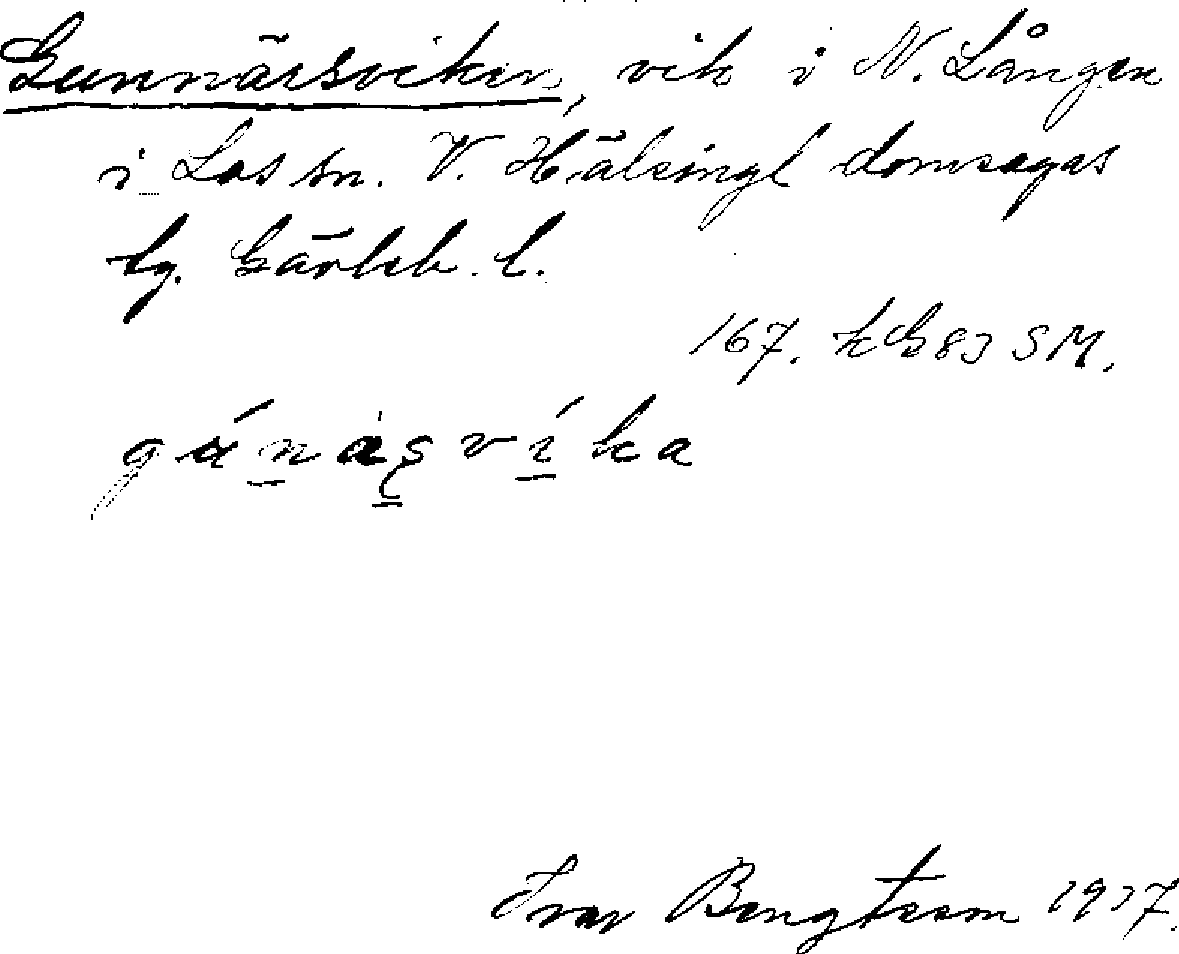 Gunnärsviken, vik i N. Lången
i Los sn. V. Hälsingl domsagas
tg. Gävleb. l.
167. kG83 SM.
Ivar Bengtsson 1937.